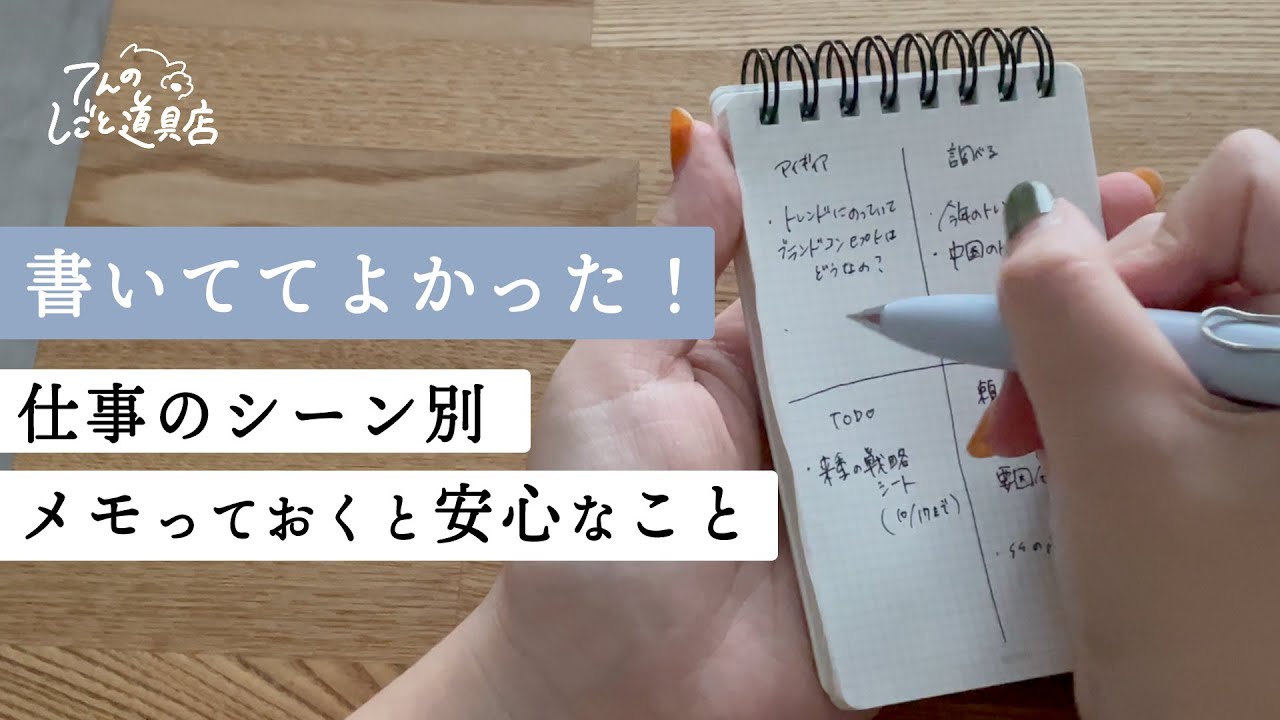 てんの
しごと道具店
書いててよかった!
仕事のシーン別
メモっておくと安心なこと
アイディア
・トレンドにのっていて
ブランドコンセプトは
どうなの?
調べる
・今年のトレ
・中国の
TODO
・来季の戦略
シート
(10/17まで)
頼
要因